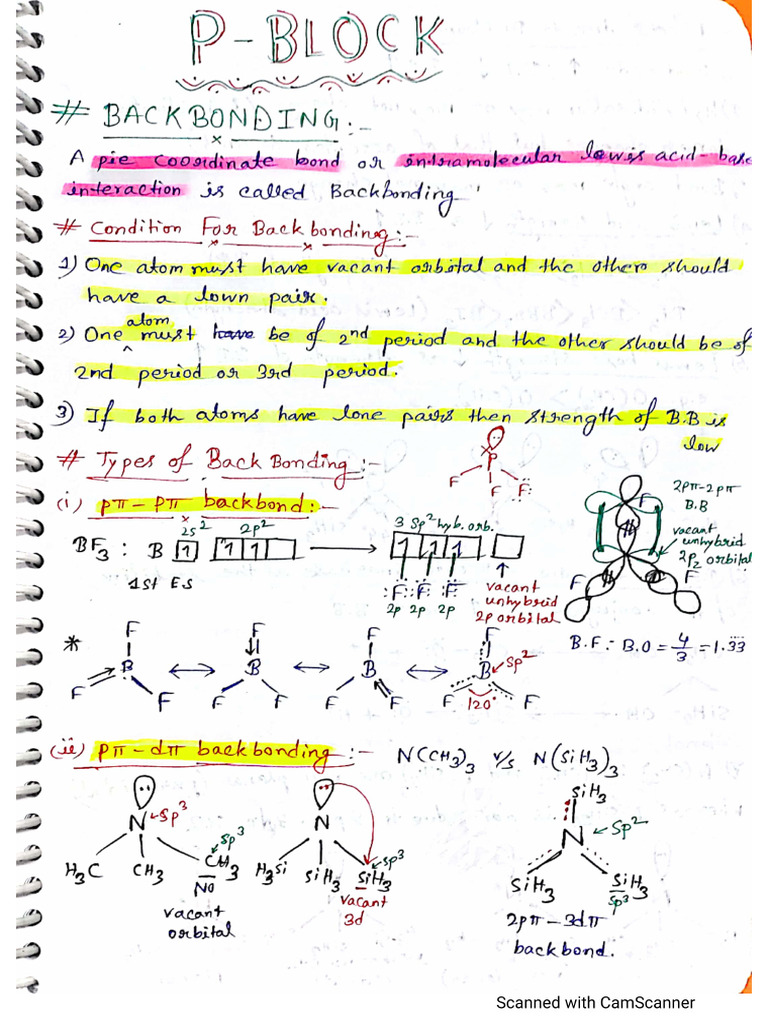 P-BLOCK
# BACKBONDING:-
A pie coordinate bond or intramolecular lewis acid-base
interaction is called Backbonding
# Condition For Backbonding:-
1) One atom must have vacant orbital and the others should
have a lown pair.
2) One atom must have be of 2nd period and the other should be of
2nd period or 3rd period.
3) If both atoms have lone pairs then strength of B.B is
low
# Types of Back Bonding:-
P
F F F
(i) pπ-pπ backbond:-
2s² 2p²
3 sp² hyb. orb.
2pπ-2pπ
B.B
BF₃: B 1 1 1 → 1 1 1
1st ES
F F F
2p 2p 2p
vacant
unhybrid
2p orbital
F
vacant
unhybrid
2pz orbital
F F
B.F: B.O = 4/3 = 1.33
*
F F F F
B ↔ B ↔ B ↔ B sp²
F F F F F F F 120° F
(ii) pπ-dπ backbonding:- N(CH₃)₃ v/s N(SiH₃)₃
N sp³
H₃C CH₃ CH₃ sp³
No
vacant
orbital
N
H₃Si SiH₃ SiH₃ sp³
vacant
3d
SiH₃
N sp²
SiH₃ SiH₃
sp³
2pπ-3dπ
backbond.
Scanned with CamScanner